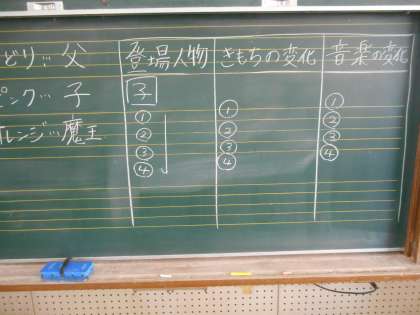 どり…父
ピンク…子
オレンジ…魔王
登場人物
子
①
②
③
④
きもちの変化
①
②
③
④
音楽の変化
①
②
③
④